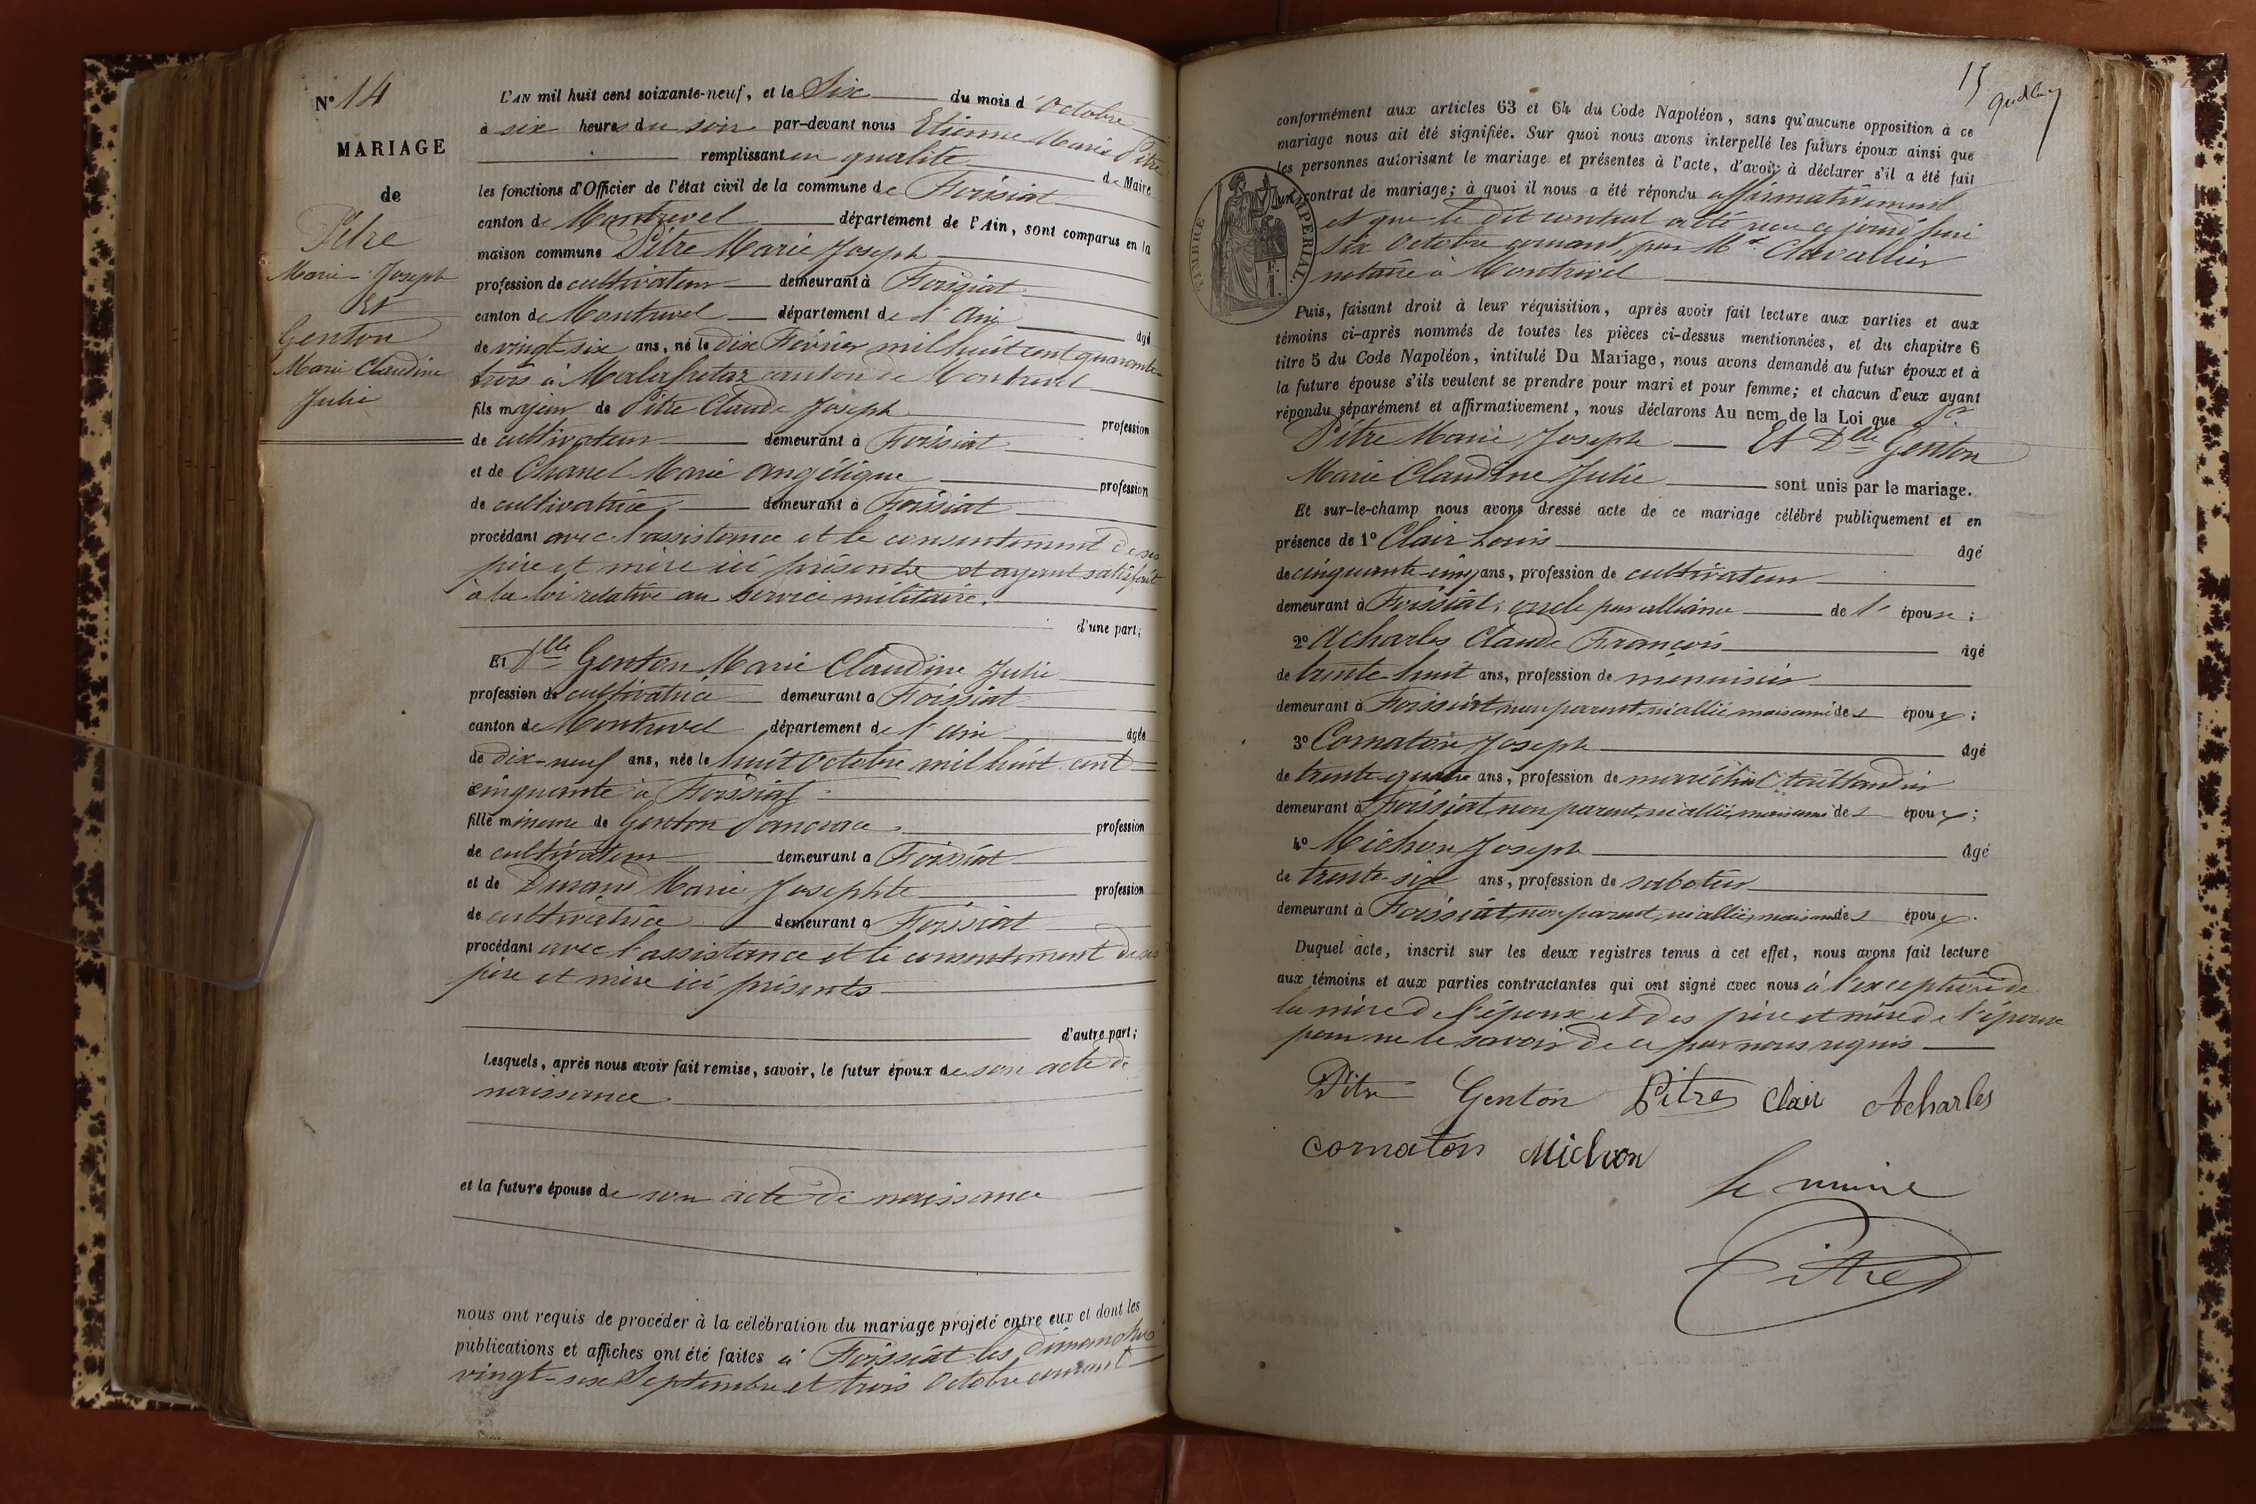 N° 14
MARIAGE
de
Pitre
Marie-Joseph
Et
Genton
Marie Claudine
Julie
L'AN mil huit cent soixante-neuf, et le Six du mois d'Octobre
à six heures du soir par-devant nous Etienne Marie Pitre
remplissant en qualité de Maire
les fonctions d'Officier de l'état civil de la commune de Foissiat
canton de Montrevel département de l'Ain, sont comparus en la
maison commune Pitre Marie Joseph
profession de cultivateur demeurant à Foissiat
canton de Montrevel département de l'Ain âgé
de vingt-six ans, né le dix Février mil huit cent quarante-
trois à Malafretaz canton de Montrevel
fils majeur de Pitre Claude Joseph profession
de cultivateur demeurant à Foissiat
et de Chanel Marie Angélique profession
de cultivatrice demeurant à Foissiat
procédant avec l'assistance et le consentement de ses
père et mère ici présents et ayant satisfait
à la loi relative au service militaire.
d'une part;
Et Dlle Genton Marie Claudine Julie
profession de cultivatrice demeurant à Foissiat
canton de Montrevel département de l'Ain âgée
de dix-neuf ans, née le huit Octobre mil huit cent
cinquante à Foissiat
fille mineure de Genton Pancrace profession
de cultivateur demeurant à Foissiat
et de Durand Marie Josephte profession
de cultivatrice demeurant à Foissiat
procédant avec l'assistance et le consentement de ses
père et mère ici présents
d'autre part;
Lesquels, après nous avoir fait remise, savoir, le futur époux de son acte de
naissance
et la future épouse de son acte de naissance
nous ont requis de procéder à la célébration du mariage projeté entre eux et dont les
publications et affiches ont été faites à Foissiat les dimanches
vingt-six Septembre et trois Octobre courant
15
conformément aux articles 63 et 64 du Code Napoléon, sans qu'aucune opposition à ce
mariage nous ait été signifiée. Sur quoi nous avons interpellé les futurs époux ainsi que
les personnes autorisant le mariage et présentes à l'acte, d'avoir à déclarer s'il a été fait
un contrat de mariage; à quoi il nous a été répondu affirmativement
et que le dit contrat a été reçu ce jourd'hui
six Octobre courant, par Me Clavallier
notaire à Montrevel
TIMBRE IMPERIAL
1 F.
Puis, faisant droit à leur réquisition, après avoir fait lecture aux parties et aux
témoins ci-après nommés de toutes les pièces ci-dessus mentionnées, et du chapitre 6
titre 5 du Code Napoléon, intitulé Du Mariage, nous avons demandé au futur époux et à
la future épouse s'ils veulent se prendre pour mari et pour femme; et chacun d'eux ayant
répondu séparément et affirmativement, nous déclarons Au nom de la Loi que Sr
Pitre Marie Joseph Et Dlle Genton
Marie Claudine Julie sont unis par le mariage.
Et sur-le-champ nous avons dressé acte de ce mariage célébré publiquement et en
présence de 1° Clair Louis âgé
de cinquante-cinq ans, profession de cultivateur
demeurant à Foissiat, oncle par alliance de l'épouse;
2° Acharles Claude François âgé
de trente-huit ans, profession de menuisier
demeurant à Foissiat, non parent, ni allié, mais ami des époux;
3° Cornaton Joseph âgé
de trente-quatre ans, profession de maréchal taillandier
demeurant à Foissiat, non parent, ni allié, mais ami des époux;
4° Michon Joseph âgé
de trente-six ans, profession de sabotier
demeurant à Foissiat, non parent, ni allié, mais ami des époux.
Duquel acte, inscrit sur les deux registres tenus à cet effet, nous avons fait lecture
aux témoins et aux parties contractantes qui ont signé avec nous à l'exception de
la mère de l'époux et des père et mère de l'épouse
pour ne le savoir de ce par nous requis
Pitre Genton Pitre Clair Acharles
Cornaton Michon
Le maire
Pitre